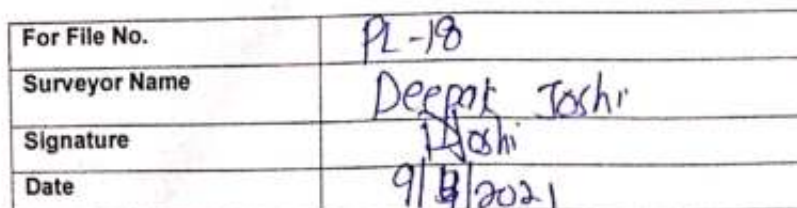 For File No. PL-18
Surveyor Name Deepak Joshi
Signature DJoshi
Date 9/ /2021